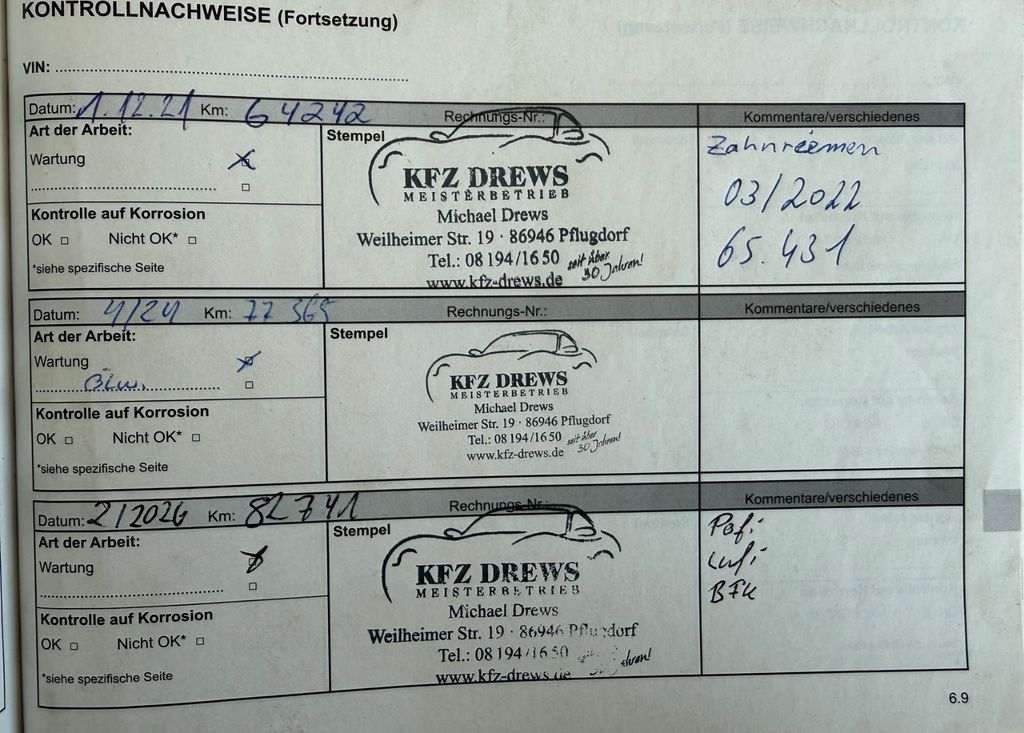 KONTROLLNACHWEISE (Fortsetzung)
VIN:
Datum: 1.12.21 Km: 64242 Rechnungs-Nr.: Kommentare/verschiedenes
Art der Arbeit:
Wartung
Kontrolle auf Korrosion
OK Nicht OK*
*siehe spezifische Seite
Stempel
KFZ DREWS
MEISTERBETRIEB
Michael Drews
Weilheimer Str. 19 · 86946 Pflugdorf
Tel.: 08194/1650 seit über 30 Jahren!
www.kfz-drews.de
Zahnriemen
03/2022
65.431
Datum: 4/24 Km: 77 365 Rechnungs-Nr.: Kommentare/verschiedenes
Art der Arbeit:
Wartung
Kontrolle auf Korrosion
OK Nicht OK*
*siehe spezifische Seite
Stempel
KFZ DREWS
MEISTERBETRIEB
Michael Drews
Weilheimer Str. 19 · 86946 Pflugdorf
Tel.: 08194/1650 seit über 30 Jahren!
www.kfz-drews.de
Datum: 2/2026 Km: 82741 Rechnungs-Nr.: Kommentare/verschiedenes
Art der Arbeit:
Wartung
Kontrolle auf Korrosion
OK Nicht OK*
*siehe spezifische Seite
Stempel
KFZ DREWS
MEISTERBETRIEB
Michael Drews
Weilheimer Str. 19 · 86946 Pflugdorf
Tel.: 08194/1650
www.kfz-drews.de
Pofi
Lufi
BFK
6.9